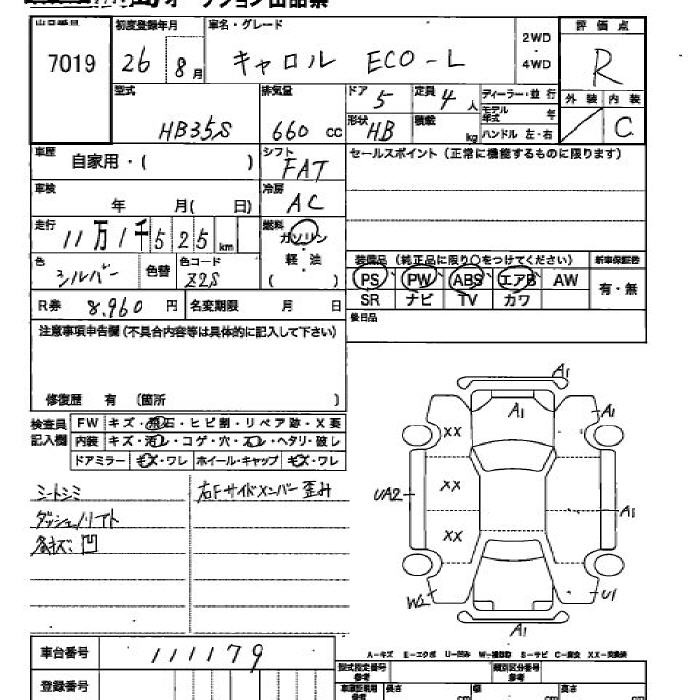 オークション出品票
出品番号 初度登録年月 車名・グレード 2WD ・ 4WD 評価点
7019 26 8月 キャロル ECO-L R
型式 排気量 ドア 5 定員 4人 ディーラー・並行 外装 内装
HB35S 660 cc 形状 HB 積載 kg モデル年式 年 C
ハンドル 左・右
車歴 自家用・( ) シフト FAT セールスポイント(正常に機能するものに限ります)
車検 年 月( 日) 冷房 AC
走行 11万1千525km 燃料 ガソリン・軽油 ( )
色 シルバー 色替 色コード Z2S
装備品(純正品に限り○をつけてください) 新車保証書
PS PW ABS エアB AW 有・無
SR ナビ TV カワ
R券 8,960円 名変期限 月 日 後日品
注意事項申告欄(不具合内容等は具体的に記入して下さい)
修復歴 有 〔箇所 〕
検査員記入欄 FW キズ・飛石・ヒビ割・リペア跡・X要
内装 キズ・汚レ・コゲ・穴・スレ・ヘタリ・破レ
ドアミラー キズ・ワレ ホイール・キャップ キズ・ワレ
シートシミ 右Fサイドメンバー歪み
ダッシュノリアト
凹
A1
A1 A1
XX
XX
UA2 A1
XX
W2 U1
A1
A-キズ E-エクボ U-凹み W-補修跡 S-サビ C-腐食 XX-交換済
車台番号 111179
型式指定番号 参考 類別区分番号 参考
登録番号 長さ cm 幅 cm 高さ cm